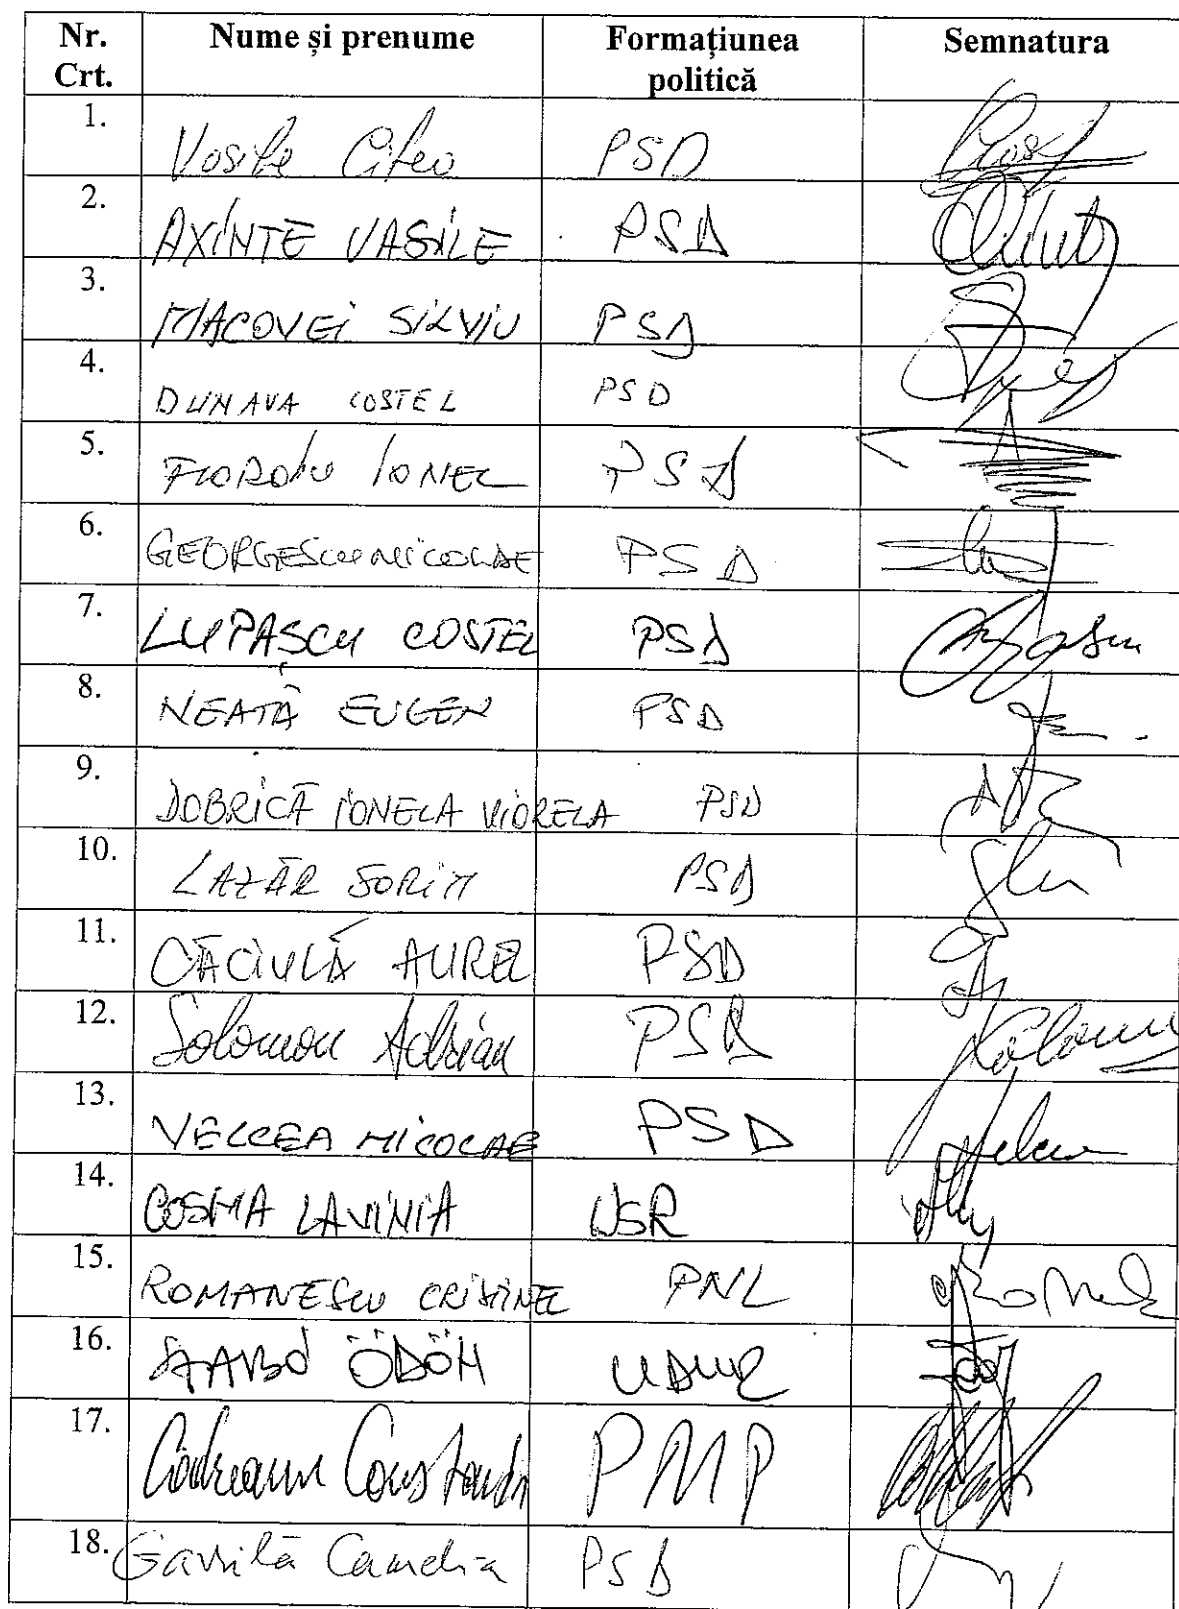 Nr. Crt. Nume și prenume Formațiunea politică Semnatura
1. Vasile Citea PSD
2. AXINTE VASILE PSD
3. MACOVEI SILVIU PSD
4. DUNAVA COSTEL PSD
5. FLOROIU IONEL PSD
6. GEORGESCU NICOLAE PSD
7. LUPAȘCU COSTEL PSD
8. NEAȚĂ EUGEN PSD
9. DOBRICĂ IONELA VIORELA PSD
10. LAZĂR SORIN PSD
11. CĂCIULĂ AUREL PSD
12. Solomon Adrian PSD
13. VELCEA NICOLAE PSD
14. COSMA LAVINIA USR
15. ROMANESCU CRISTINEL PNL
16. SZABÓ ÖDÖN UDMR
17. Codreanu Constantin PMP
18. Gavrilă Camelia PSD